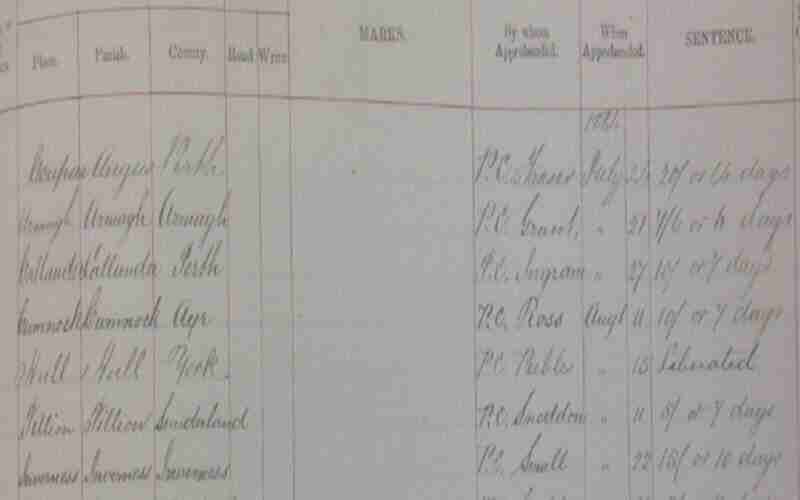 Place. Parish. County. Read Write MARKS. By whom Apprehended. When Apprehended. SENTENCE.
Coupar Angus Perth. P.C. Fraser July 20/ or 14 days
Armagh Armagh Armagh P.C. Grant, " 21 7/6 or 4 days
Callander Callander Perth P.C. Ingram " 27 10/ or 7 days
Cumnock Cumnock Ayr P.C. Ross Augt 11 10/ or 7 days
Hull Hull York. P.C. " 15 Liberated
P.C. Sneddon " 11 5/ or 7 days
Inverness Inverness Inverness P.C. Small " 22 15/ or 10 days